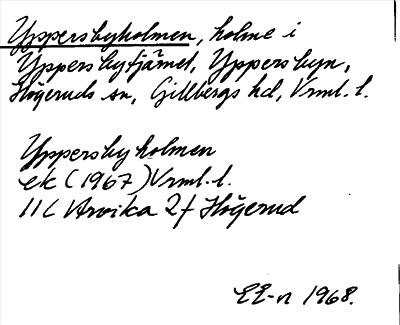 Yppersbyholmen, holme i
Yppersbytjärnet, Yppersbyn,
Högeruds sn, Gillbergs hd, Vrml. l.
Yppersbyholmen
ek (1967) Vrml. l.
11C Arvika 2f Högerud
EE-n 1968.